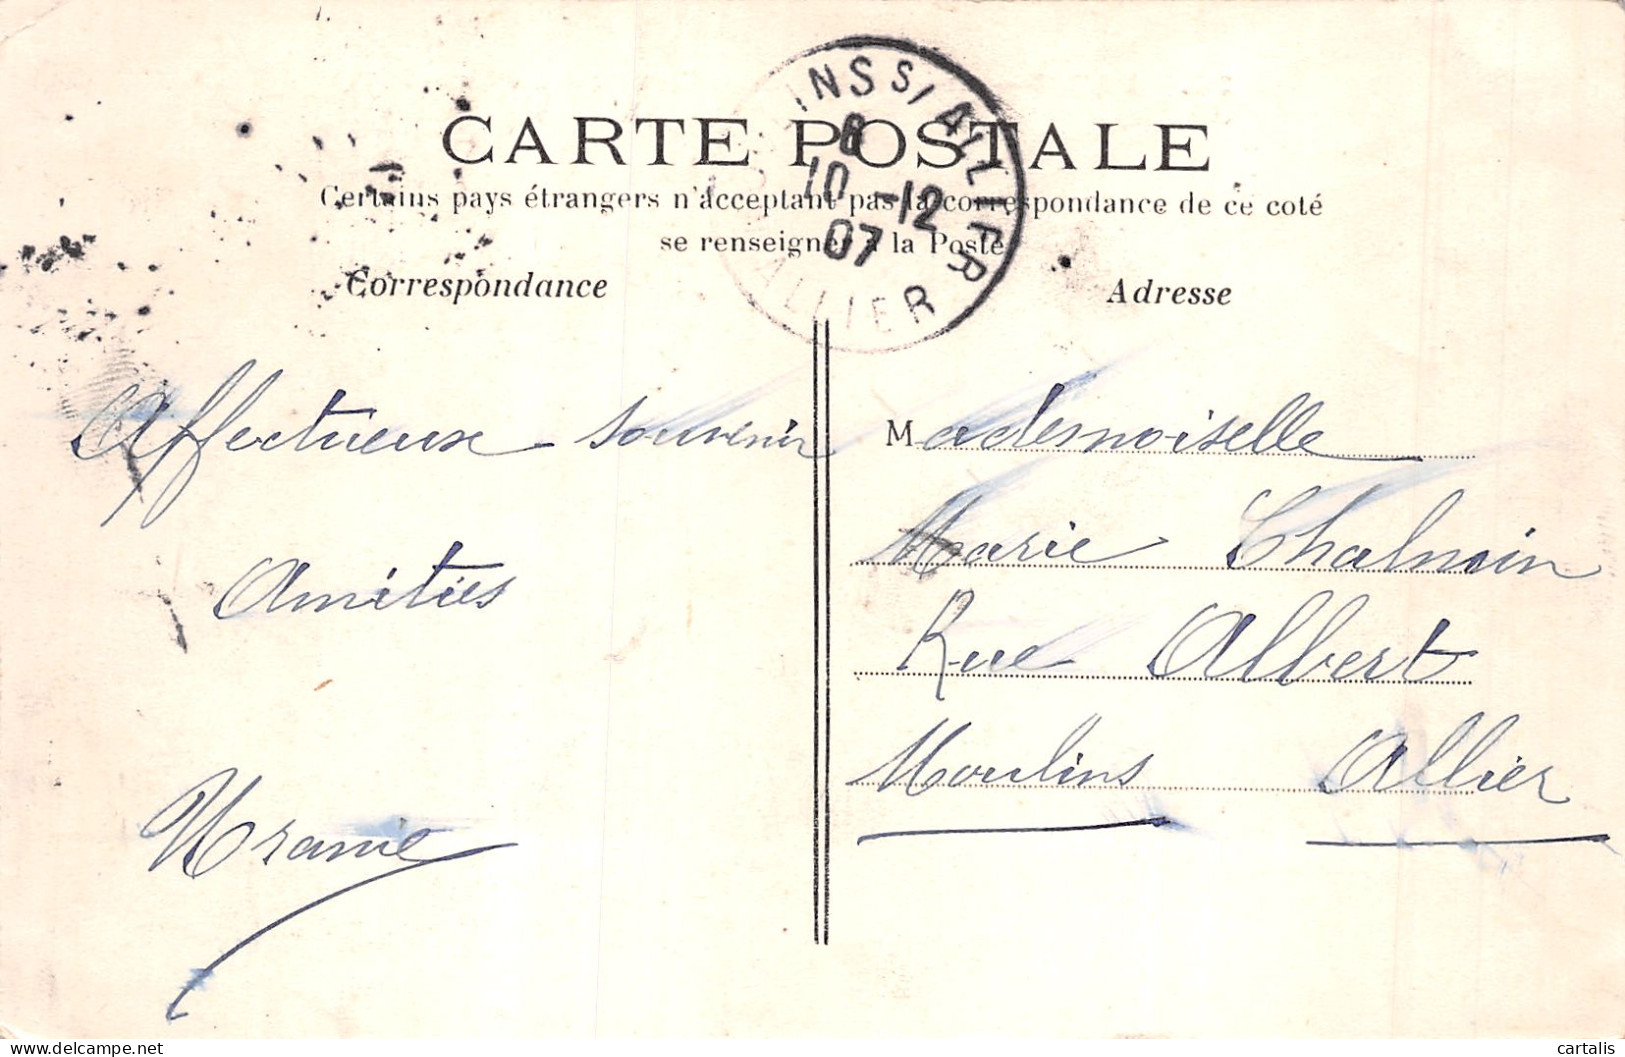 CARTE POSTALE
Certains pays étrangers n'acceptant pas la correspondance de ce coté
se renseigner à la Poste
INS S/ ALLIER
8
10 -12
07
ALLIER
Correspondance
Affectueux souvenir
Amitiés
Uranie
Adresse
Mademoiselle
Marie Chalmin
Rue Albert
Moulins Allier
cartalis
www.delcampe.net